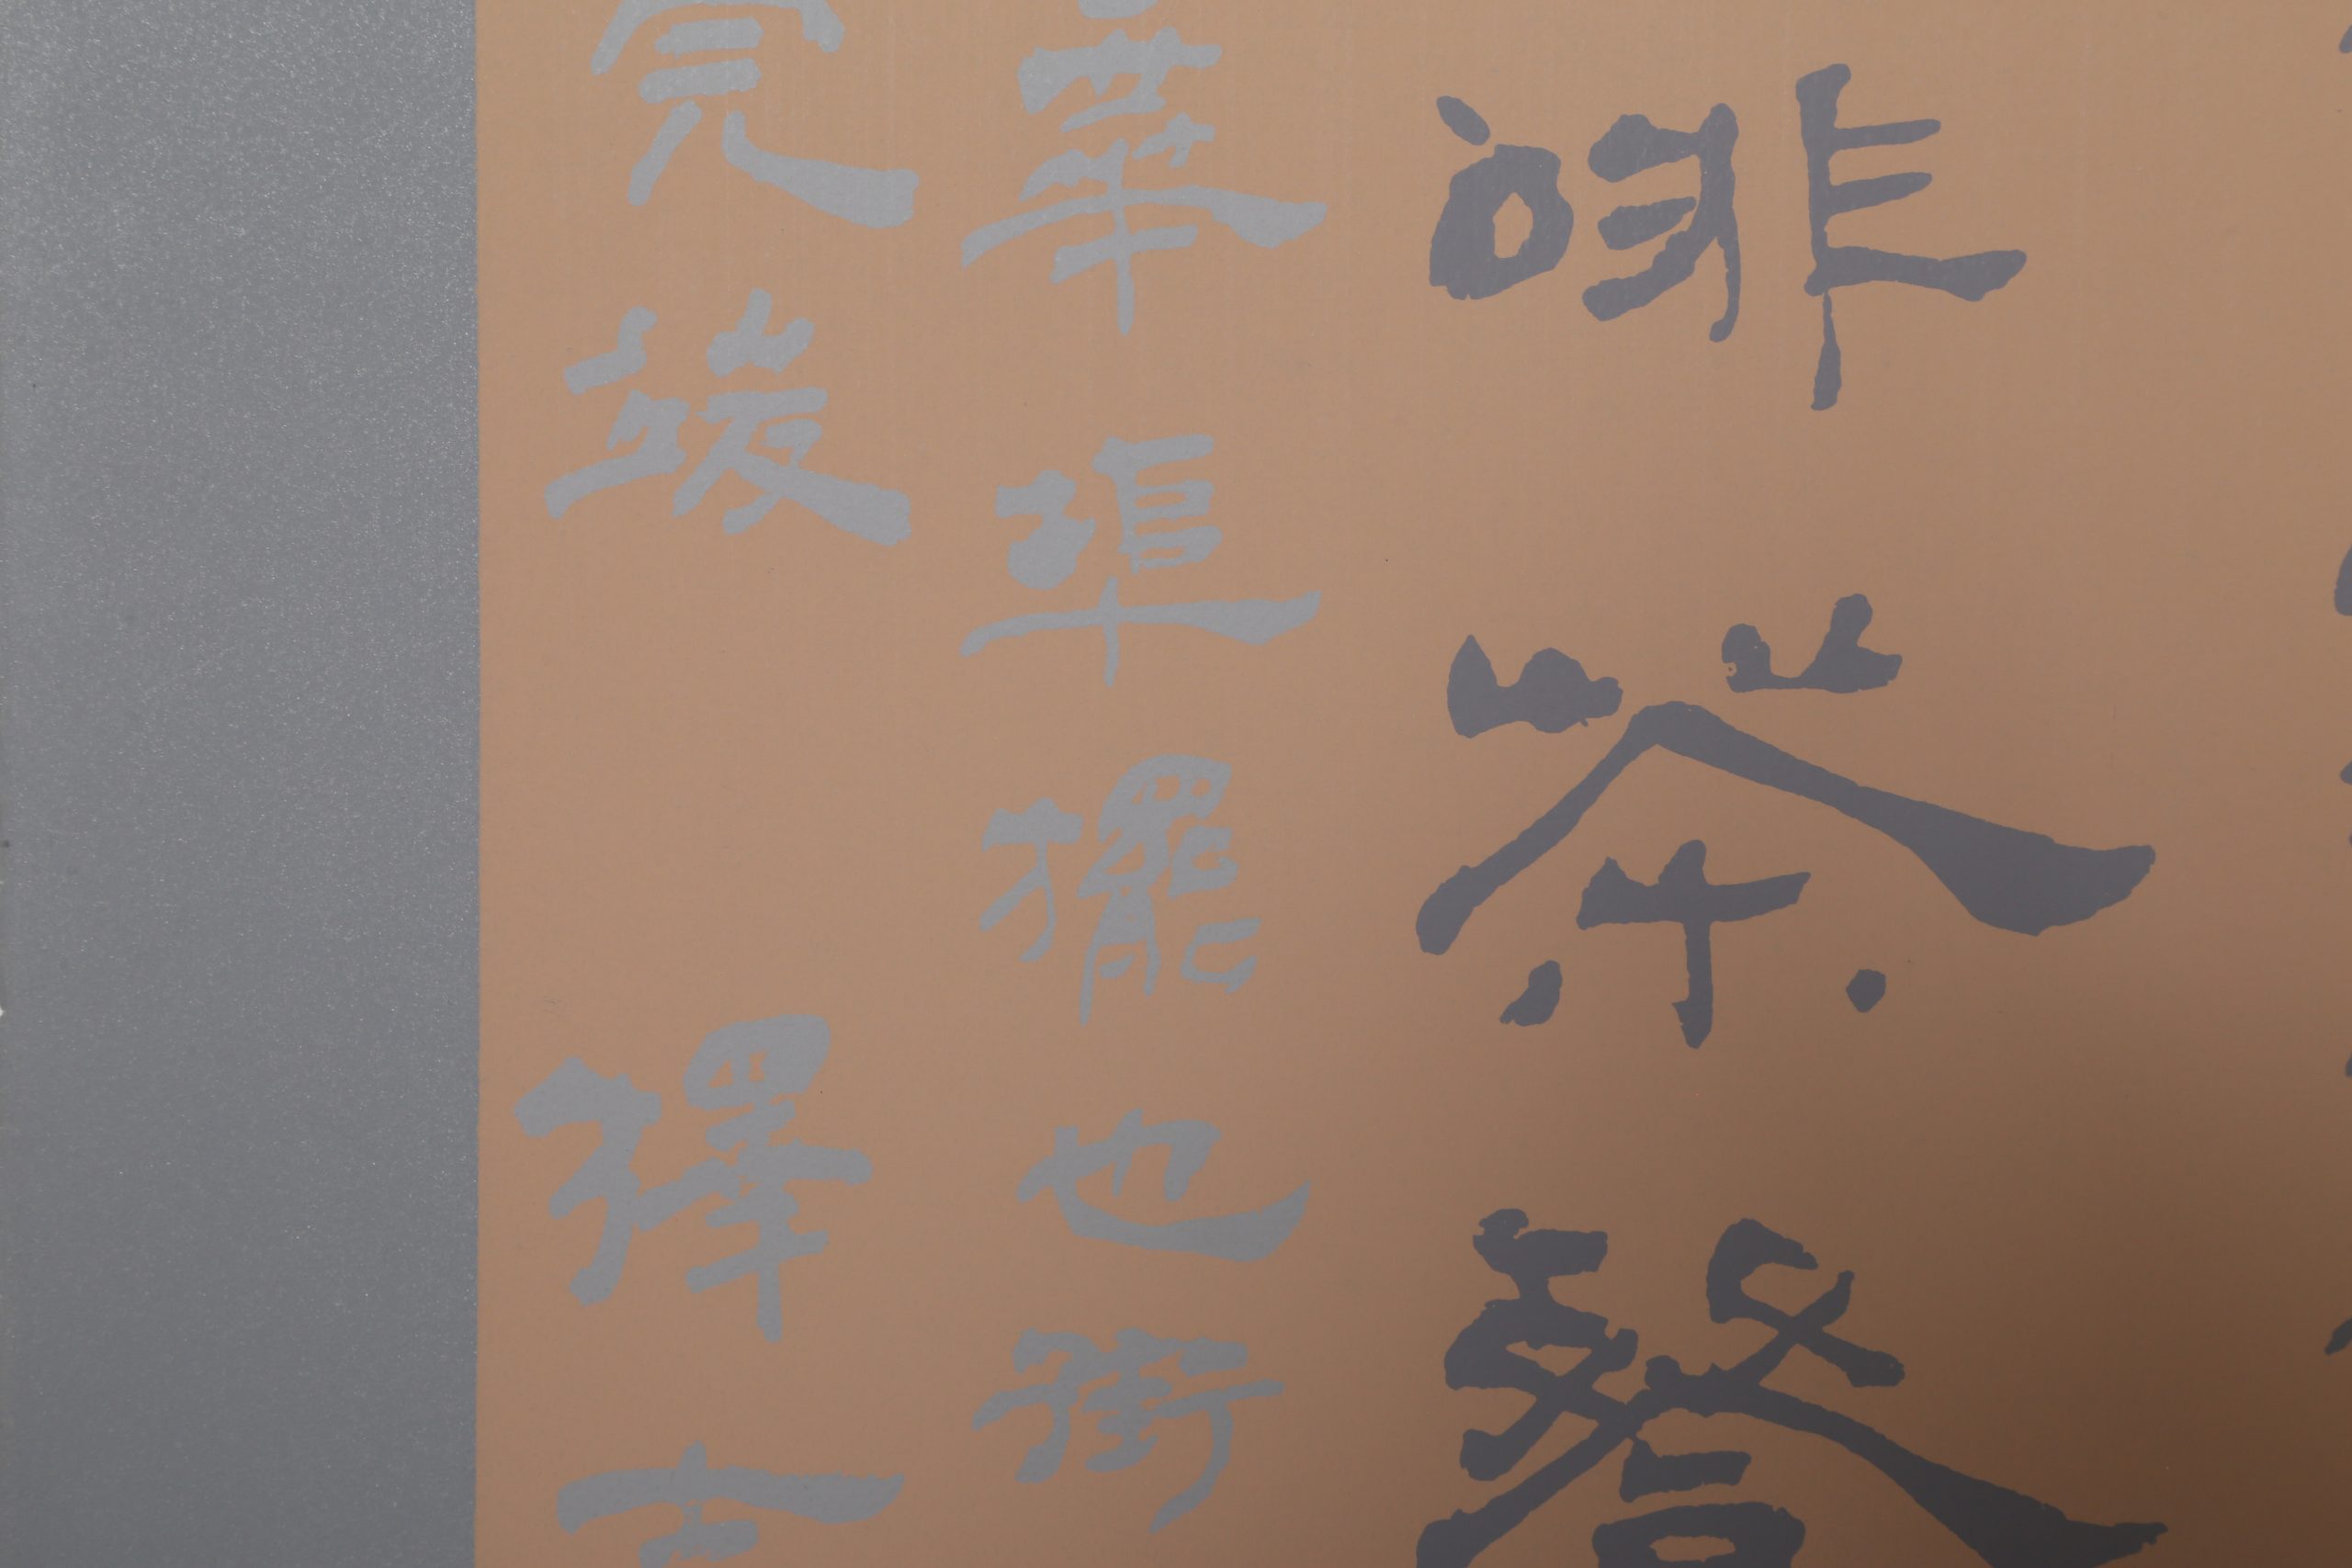 啡茶餐
華埠擺也街
完竣 擇吉